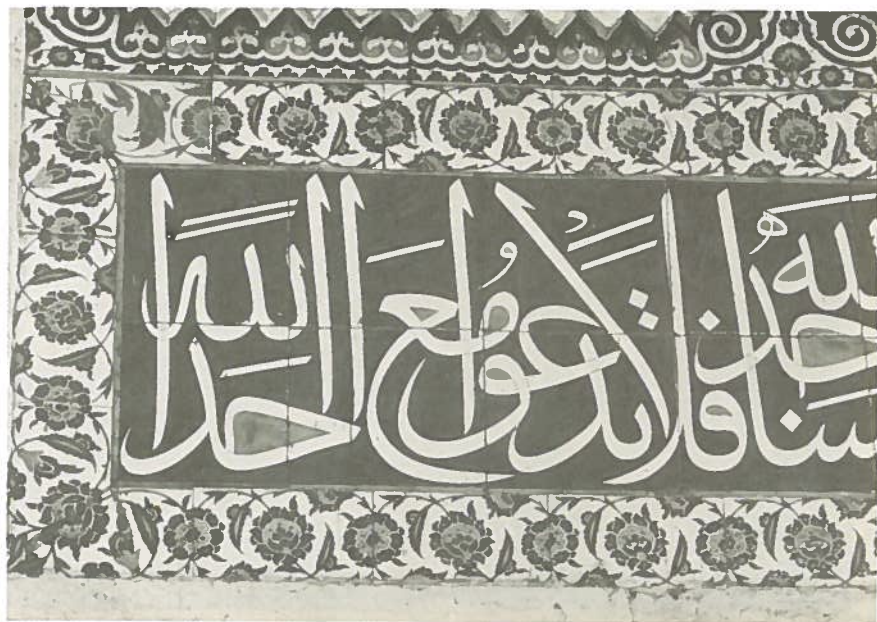 ساجد لله فلا تدعوا مع الله احدا